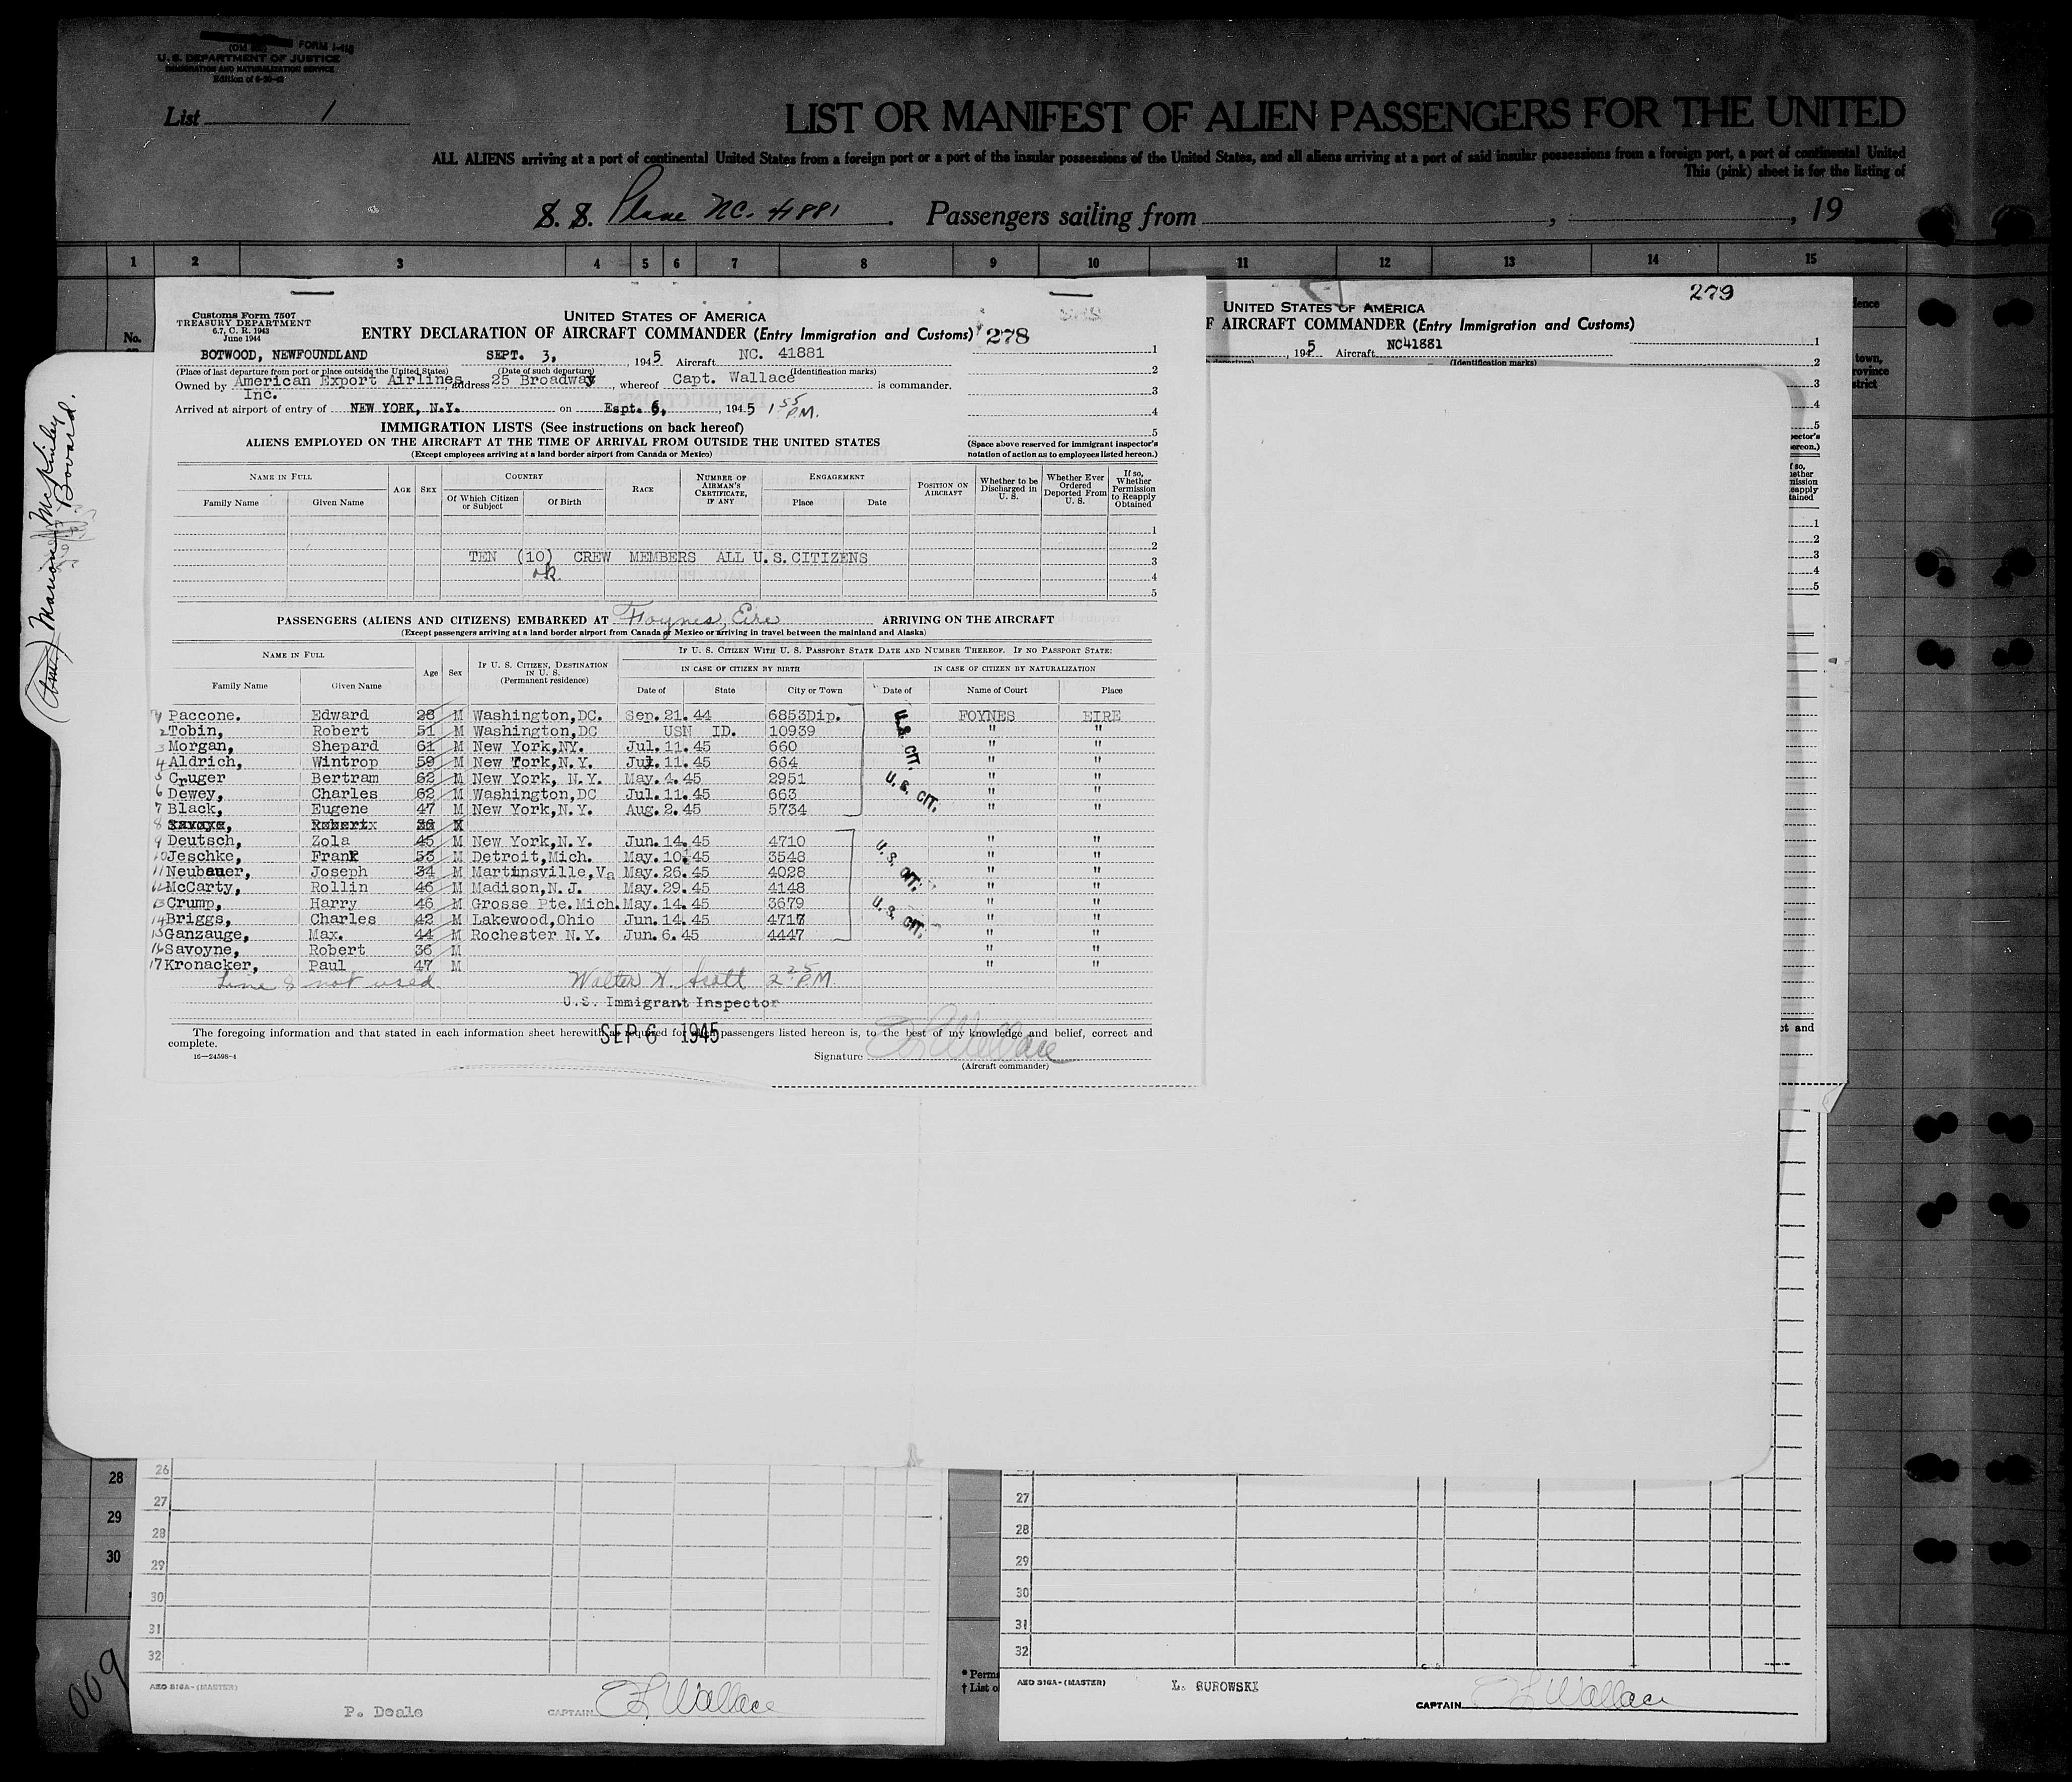 (Old 500) FORM I-415
U. S. DEPARTMENT OF JUSTICE
IMMIGRATION AND NATURALIZATION SERVICE
List 1
LIST OR MANIFEST OF ALIEN PASSENGERS FOR THE UNITED
ALL ALIENS arriving at a port of continental United States from a foreign port or a port of the insular possessions of the United States, and all aliens arriving at a port of said insular possessions from a foreign port, a port of continental United
This (pink) sheet is for the listing of
S. S. Plane NC. 41881 . Passengers sailing from , , 19
1 2 3 4 5 6 7 8 9 10 11 12 13 14 15
No.
Customs Form 7507
TREASURY DEPARTMENT
6.7, C. R. 1943
June 1944
UNITED STATES OF AMERICA
ENTRY DECLARATION OF AIRCRAFT COMMANDER (Entry Immigration and Customs) 278
BOTWOOD, NEWFOUNDLAND SEPT. 3, , 1945 Aircraft NC. 41881 1
(Place of last departure from port or place outside the United States) (Date of such departure) (Identification marks) 2
Owned by American Export Airlines Inc. , address 25 Broadway , whereof Capt. Wallace is commander. 3
Arrived at airport of entry of NEW YORK, N.Y. on Espt. 6, , 1945 1 55 P.M. 4
IMMIGRATION LISTS (See instructions on back hereof) 5
ALIENS EMPLOYED ON THE AIRCRAFT AT THE TIME OF ARRIVAL FROM OUTSIDE THE UNITED STATES
(Except employees arriving at a land border airport from Canada or Mexico)
(Space above reserved for immigrant inspector's notation of action as to employees listed hereon.)
NAME IN FULL AGE SEX COUNTRY RACE NUMBER OF AIRMAN'S CERTIFICATE, IF ANY ENGAGEMENT POSITION ON AIRCRAFT Whether to be Discharged in U. S. Whether Ever Ordered Deported From U. S. If so, Whether Permission to Reapply Obtained
Family Name Given Name Of Which Citizen or Subject Of Birth Place Date
1
2
TEN (10) CREW MEMBERS ALL U.S.CITIZENS 3
ok 4
5
PASSENGERS (ALIENS AND CITIZENS) EMBARKED AT Foynes, Eire ARRIVING ON THE AIRCRAFT
(Except passengers arriving at a land border airport from Canada or Mexico or arriving in travel between the mainland and Alaska)
NAME IN FULL Age Sex IF U. S. CITIZEN, DESTINATION IN U. S. (Permanent residence) IF U. S. CITIZEN WITH U. S. PASSPORT STATE DATE AND NUMBER THEREOF. IF NO PASSPORT STATE:
IN CASE OF CITIZEN BY BIRTH IN CASE OF CITIZEN BY NATURALIZATION
Family Name Given Name Date of State City or Town Date of Name of Court Place
1 Paccone. Edward 28 M Washington,DC. Sep.21.44 6853Dip. U.S. CIT. FOYNES EIRE
2 Tobin, Robert 51 M Washington,DC USN ID. 10939 " "
3 Morgan, Shepard 61 M New York,NY. Jul.11.45 660 " "
4 Aldrich, Wintrop 59 M New York,N.Y. Jul.11.45 664 " "
5 Cruger Bertram 62 M New York, N.Y. May.4.45 2951 U. S. CIT. " "
6 Dewey, Charles 62 M Washington,DC Jul.11.45 663 " "
7 Black, Eugene 47 M New York,N.Y. Aug.2.45 5734 " "
8 Savoye, Robert 36 M
9 Deutsch, Zola 45 M New York,N.Y. Jun.14.45 4710 U. S. CIT. " "
10 Jeschke, Frank 53 M Detroit,Mich. May.10.45 3548 " "
11 Neubauer, Joseph 34 M Martinsville,Va May.26.45 4028 " "
12 McCarty, Rollin 46 M Madison,N.J. May.29.45 4148 " "
13 Crump, Harry 46 M Grosse Pte.Mich. May.14.45 3679 U. S. CIT. " "
14 Briggs, Charles 42 M Lakewood,Ohio Jun.14.45 4717 " "
15 Ganzauge, Max. 44 M Rochester N.Y. Jun.6.45 4447 " "
16 Savoyne, Robert 36 M " "
17 Kronacker, Paul 47 M " "
Line 8 not used Walter N. Scott 2 25 P.M.
U.S. Immigrant Inspector
SEP 6 1945
The foregoing information and that stated in each information sheet herewith as required for all passengers listed hereon is, to the best of my knowledge and belief, correct and complete.
16—24598-1 Signature Wallace
(Aircraft commander)
279
UNITED STATES OF AMERICA
F AIRCRAFT COMMANDER (Entry Immigration and Customs)
, 1945 Aircraft NC41881 1
(Identification marks) 2
3
4
5
1
2
3
4
5
Marion McKinley
Bovard.
26
28 27
29 28
30 29
30
31
32
AEO 316A-(MASTER)
P. Deale CAPTAIN Wallace
009
* Perm
† List o
27
28
29
30
31
32
AEO 316A-(MASTER) L. BUROWSKI
CAPTAIN Wallace